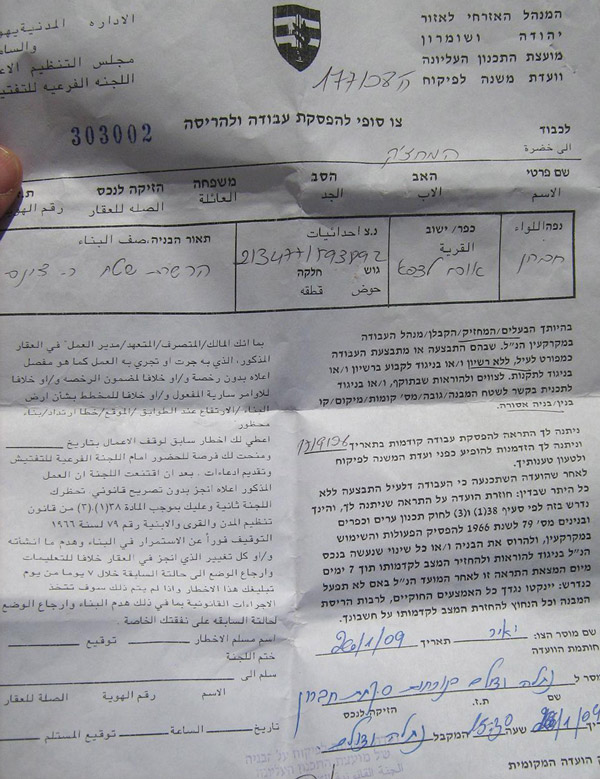 המנהל האזרחי לאזור
יהודה ושומרון
מועצת התכנון העליונה
וועדת משנה לפיקוח
الاداره المدنية
مجلس التنظيم
اللجنه الفرعيه
303002
צו סופי להפסקת עבודה ולהריסה
לכבוד
الى حضرة
המחזיק
שם פרטי
האב
הסב
משפחה
הזיקה לנכס
الاسم
الاب
الجد
العائلة
الصله للعقار
رقم الهوية
נפה/اللواء
כפר/ישוב
נ.צ احداثيات
תאור הבניה.صف البناء
القرية
חברון
גוש
חלקה
حوض
قطعه
בהיותך הבעלים/המחזיק/הקבלן/מנהל העבודה
במקרקעין הנ"ל. שבהם התבצעה או מתבצעת העבודה
כמפורט לעיל, ללא רשיון ו/או בניגוד לקבוע ברשיון ו/או
בניגוד לתקנות. לצווים ולהוראות שבתוקף, ו/או בניגוד
לתכנית בקשר לשטח המבנה/גובה/מס' קומות/מיקום/קו
בנין/בניה אסורה.
ניתנה לך התראה להפסקת עבודה קודמות בתאריך
וניתנה לך הזדמנות להופיע בפני ועדת המשנה לפיקוח
ולטעון טענותיך.
לאחר שהועדה השתכנעה כי העבודה דלעיל התבצעה ללא
כל היתר שבדין: חוזרת הועדה על התראה שניתנה לך, והינך
נדרש בזה לפי סעיף 38(1) ו(3) לחוק תכנון ערים וכפרים
ובנינים מס' 79 לשנת 1966 להפסיק הפעולות והשימוש
במקרקעין, ולהרוס את הבניה ו/או כל שינוי שנעשה בנכס
הנ"ל בניגוד להוראות ולהחזיר המצב לקדמותו תוך 7 ימים
מיום המצאת התראה זו לאחר המועד הנ"ל באם לא תפעל
כנדרש: יינקטו נגדך כל האמצעים החוקיים, לרבות הריסת
המבנה וכל הנחוץ להחזרת המצב לקדמותו על חשבונך.
بما انك المالك/المتصرف/المتعهد/مدير العمل في العقار
المذكور، الذي به جرت او تجري به العمل كما هو مفصل
اعلاه بدون رخصة و/او خلافا لمضمون الرخصه و/او خلافا
للاوامر سارية المفعول و/او خلافا للمخطط بشأن ارض
البناء/الارتفاع عند الطوابق/الموقع/خطا ارتداد/بناء
محظور
اعطي لك اخطار سابق لوقف الاعمال بتاريخ
ومنحت لك فرصة للحضور امام اللجنة الفرعية للتفتيش
وتقديم ادعاءات. بعد ان اقتنعت اللجنة ان العمل
المذكور اعلاه انجز بدون تصريح قانوني تحظرك
اللجنة ثانية وعليك بموجب المادة ٣٨(١).(٣) من قانون
تنظيم المدن والقرى والابنية رقم ٧٩ لسنة ١٩٦٦
التوقيف فوراً عن الاستمرار في البناء وهدم ما انشأته
و/او كل تغيير الذي انجز في العقار خلافا للتعليمات
وارجاع الوضع الى حالتة السابقة خلال ٧ يوما من يوم
تبليغك هذا الاخطار واذا لم يتم ذلك سوف تتخذ
الاجراءات القانونية بما في ذلك هدم البناء وارجاع الوضع
لحالتة السابقه على نفقتك الخاصة.
שם מוסר הצו: יאיר תאריך 26/1/09
חותמת הוועדה
اسم مسلم الاخطار توقيع
ختم اللجنة
سلم الى
الاسم رقم الهوية الصله للعقار
שם ת.ז. הזיקה לנכס
שעה 15:30 המקבל
تاريخ الساعة توقيع المستلم
הועדה המקומית